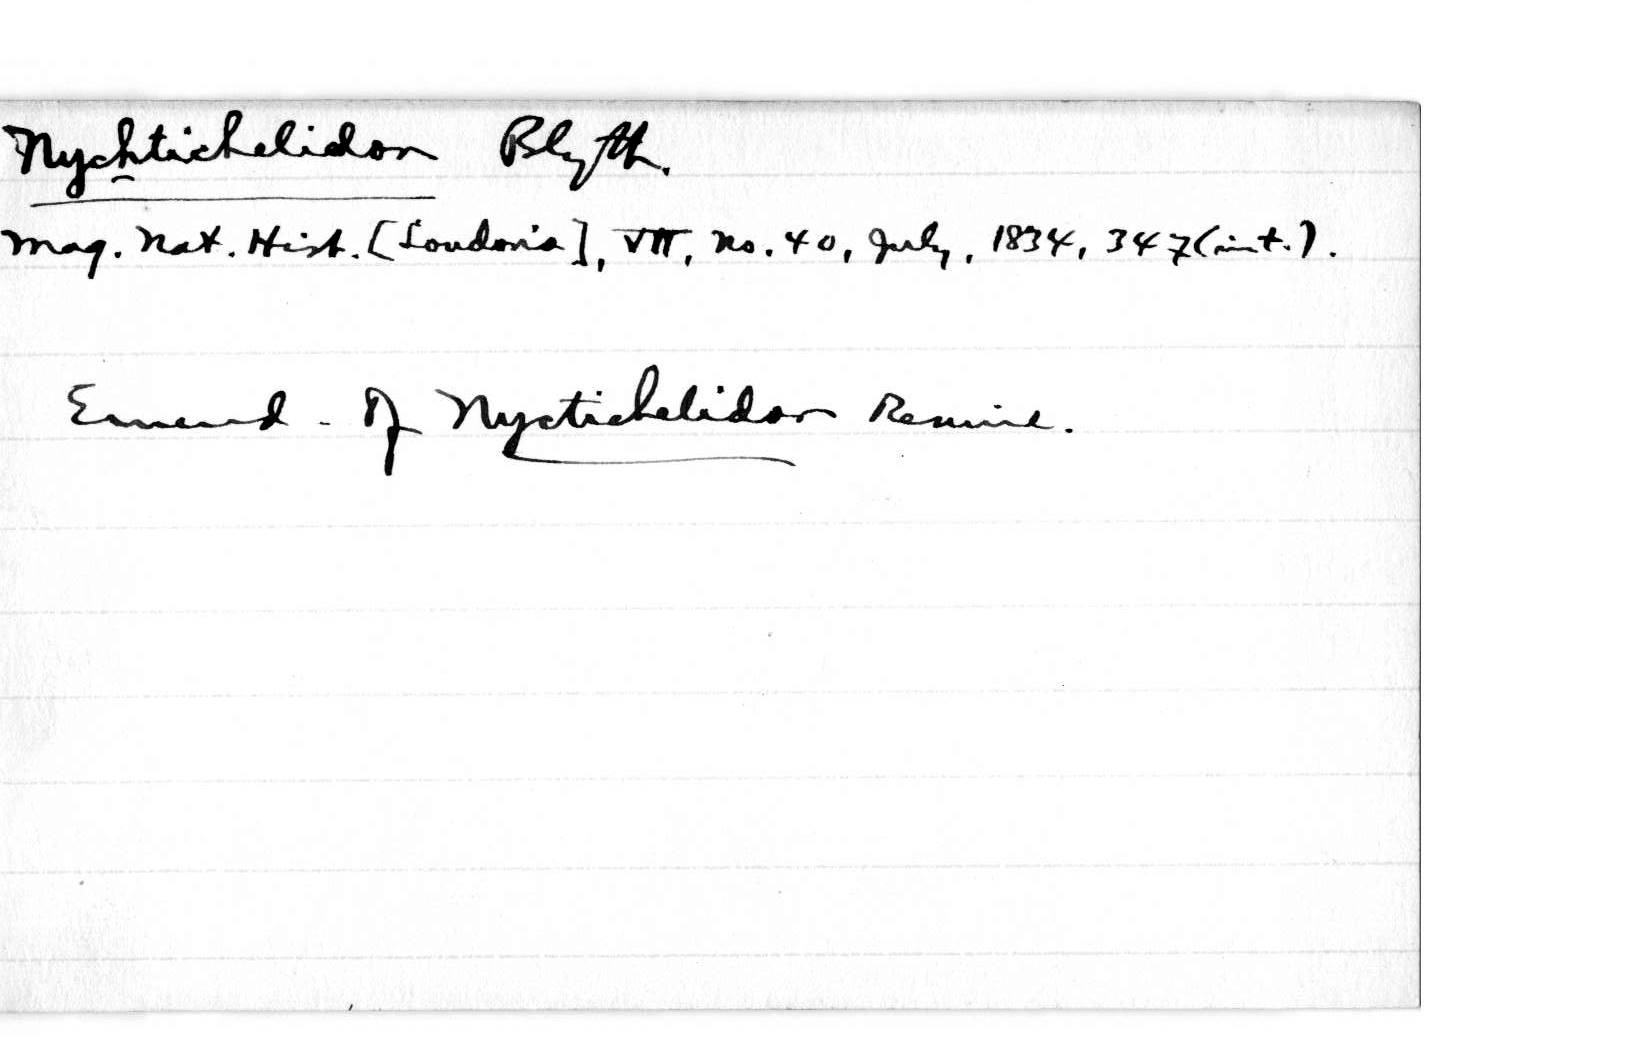 Nychtichelidon Blyth.
Mag. Nat. Hist. [Loudon's], VII, no. 40, July, 1834, 347 (int.).
Emend. of Nyctichelidon Rennie.